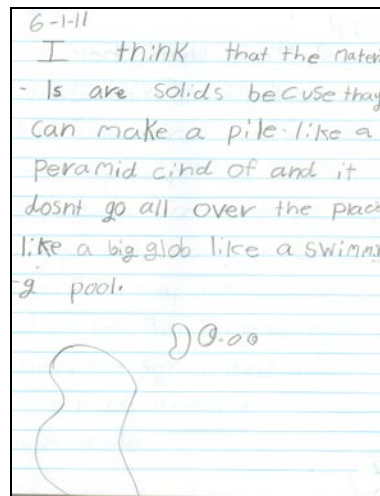 6-1-11
I think that the mater
- ls are solids becuse thay
can make a pile. like a
peramid cind of and it
dosnt go all over the plac
like a big glob like a swimmi
-g pool.